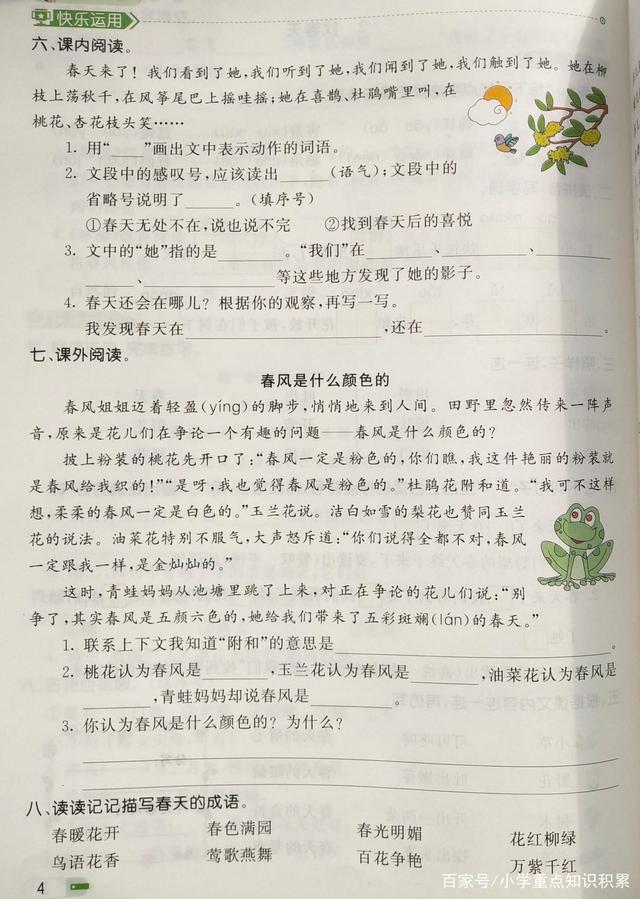 快乐运用
六、课内阅读。
春天来了！我们看到了她,我们听到了她,我们闻到了她,我们触到了她。她在柳
枝上荡秋千,在风筝尾巴上摇哇摇;她在喜鹊、杜鹃嘴里叫,在
桃花、杏花枝头笑……
1. 用“____”画出文中表示动作的词语。
2. 文段中的感叹号,应该读出______(语气);文段中的
省略号说明了______。(填序号)
①春天无处不在,说也说不完 ②找到春天后的喜悦
3. 文中的“她”指的是________。“我们”在________、________、________
________、________等这些地方发现了她的影子。
4. 春天还会在哪儿？根据你的观察,再写一写。
我发现春天在________,还在________。
七、课外阅读。
春风是什么颜色的
春风姐姐迈着轻盈(yíng)的脚步,悄悄地来到人间。田野里忽然传来一阵声
音,原来是花儿们在争论一个有趣的问题——春风是什么颜色的？
披上粉装的桃花先开口了:“春风一定是粉色的,你们瞧,我这件艳丽的粉装就
是春风给我织的！”“是呀,我也觉得春风是粉色的。”杜鹃花附和道。“我可不这样
想,柔柔的春风一定是白色的。”玉兰花说。洁白如雪的梨花也赞同玉兰
花的说法。油菜花特别不服气,大声怒斥道:“你们说得全都不对,春风
一定跟我一样,是金灿灿的。”
这时,青蛙妈妈从池塘里跳了上来,对正在争论的花儿们说:“别
争了,其实春风是五颜六色的,她给我们带来了五彩斑斓(lán)的春天。”
1. 联系上下文我知道“附和”的意思是________。
2. 桃花认为春风是______,玉兰花认为春风是______,油菜花认为春风是
______,青蛙妈妈却说春风是______。
3. 你认为春风是什么颜色的？为什么？
八、读读记记描写春天的成语。
春暖花开 春色满园 春光明媚 花红柳绿
鸟语花香 莺歌燕舞 百花争艳 万紫千红
4
百家号/小学重点知识积累